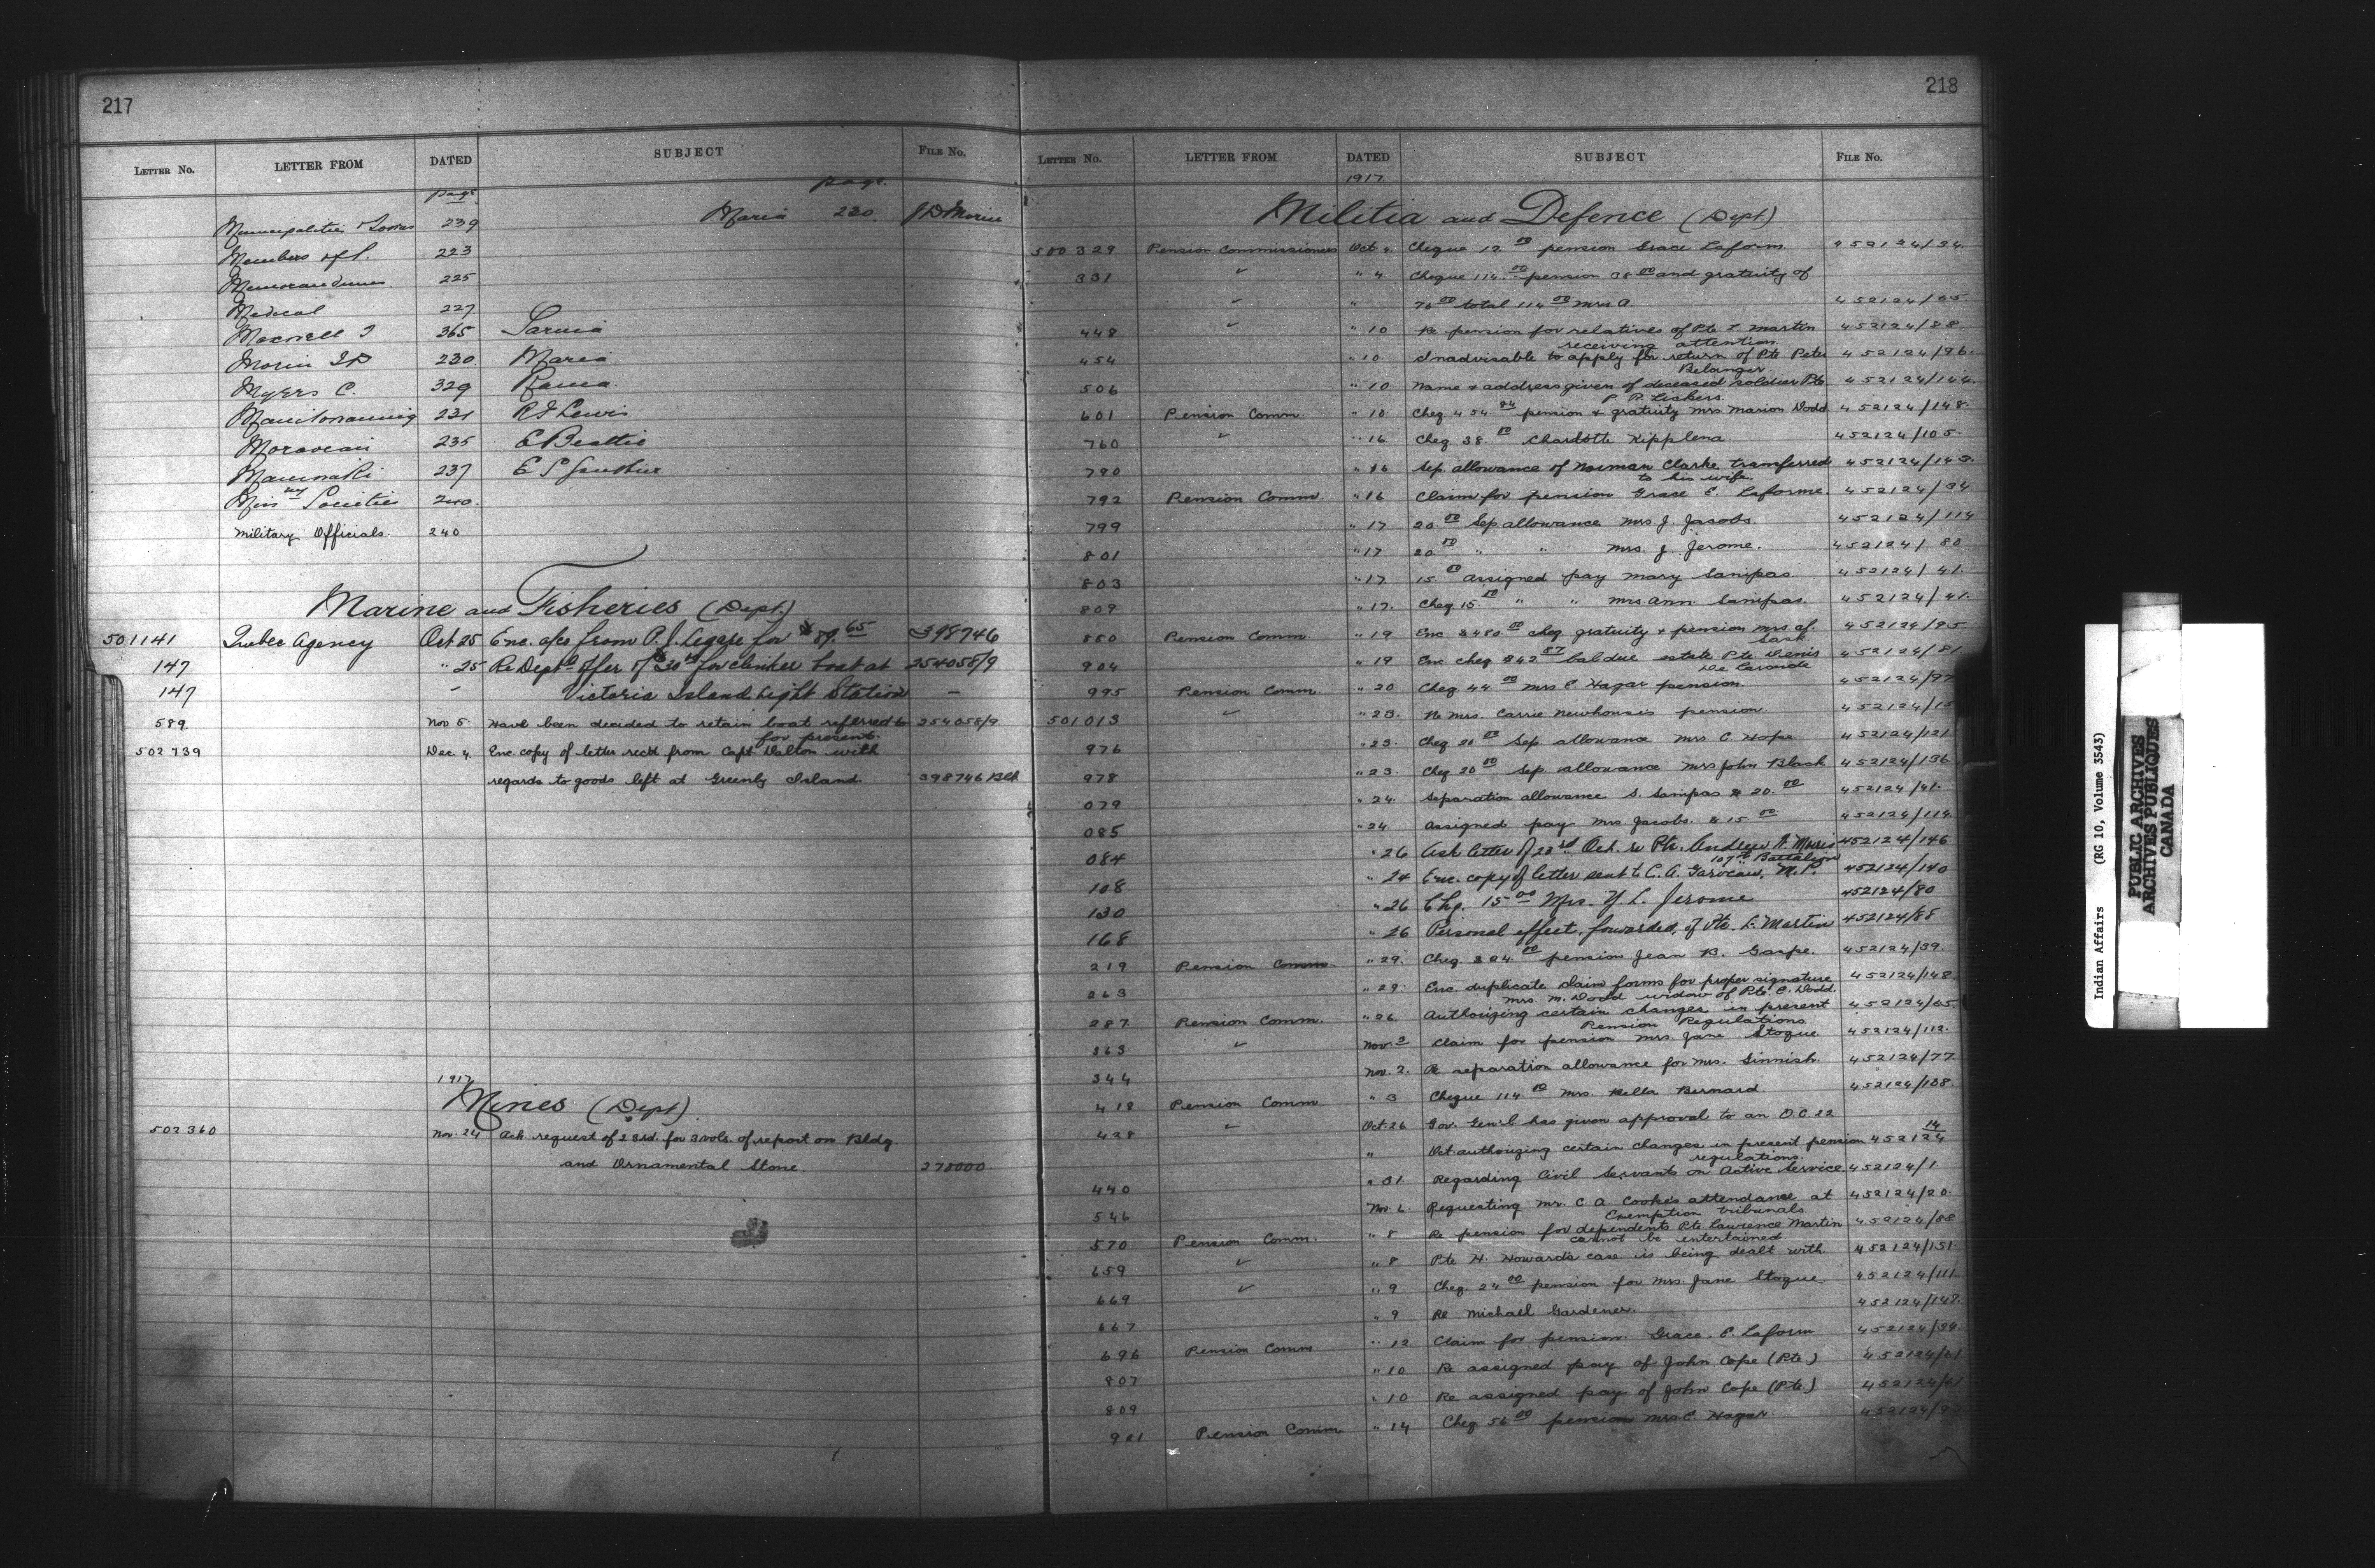 217
LETTER No. LETTER FROM DATED SUBJECT FILE No.
page page
Maria 230. J D Morin
Municipalities & Towns 239
Members of P. 223
Memorandums 225
Medical 227
Maxwell T 365 Sarnia
Morin J D 230. Maria
Myers C. 329 Rama.
Manitowaning 231 R J Lewis
Moravian 235 E Beattie
Maniwaki 237 E S Gauthier
Missny Societies 240.
Military Officials. 240
Marine and Fisheries (Dept.)
501141 Quebec Agency Oct 25 Enc. a/cs from P. J. Legare for $89.65 398746
147 " 25 Re Dept'l offer of $30 00 for clinker boat at 254058/9
147 " Victoria Island Light Station —
589 Nov. 5. Have been decided to retain boat referred to 254058/9
for present.
502739 Dec. 4. Enc. copy of letter rec'd from Capt Dalton with
regards to goods left at Greenly Island. 398746 Bld
1917
Mines (Dept)
502360 Nov. 24 Ack request of 23rd. for 3 vols. of report on Bldg.
and Ornamental Stone. 278000
218
LETTER No. LETTER FROM DATED SUBJECT FILE No.
1917.
Militia and Defence (Dept)
500329 Pension Commissioners Oct 4. Cheque 12.00 pension Grace Laform. 452124/34.
331 " " 4. Cheque 114.00 pension 38 00 and gratuity of
" " 76 00 total 114 00 Mrs A. 452124/55.
448 " " 10 Re pension for relatives of Pte. L. Martin 452124/88.
receiving attention.
454 " 10. Inadvisable to apply for return of Pte. Peter 452124/96.
Belanger.
506 " 10 Name & address given of deceased soldier Pte 452124/144.
P. R. Lickers.
601 Pension Comm. " 10. Cheq 454.84 pension & gratuity Mrs Marion Dodd 452124/148.
760 " " 16. Cheq. 38.00 Charlotte Kipplena. 452124/105.
790 " 16 Sep. allowance of Norman Clarke transferred 452124/143.
to his wife.
792 Pension Comm. " 16 Claim for pension Grace E. Laforme. 452124/34
799 " 17 20.00 Sep. allowance Mrs. J. Jacobs. 452124/114
801 " 17 20.00 " " Mrs. J. Jerome. 452124/80
803 " 17. 15.00 Assigned pay Mary Sampas. 452124/41.
809 " 17. Cheq. 15.00 " " Mrs. Ann Sampas. 452124/41.
850 Pension Comm. " 19 Enc $480.00 cheq gratuity & pension Mrs. Cf. 452124/95.
Sark.
904 " 19 Enc cheq $42.87 bal due estate Pte. Denis 452124/81
De Laronde
995 Pension Comm. " 20. Cheq. 44.00 Mrs C. Hagar pension. 452124/97
501013 " 23. Re Mrs. Carrie Newhouse's pension. 452124/15
976 " 23. Cheq 20.00 Sep. allowance Mrs C. Hope. 452124/121
978 " 23. Cheq 20.00 Sep. allowance Mrs John Black 452124/136
079 " 24. Separation allowance S. Sampas $ 20.00 452124/41.
085 " 24. Assigned pay Mrs Jacobs. $ 15.00 452124/114.
084 " 26 Ack letter of 23rd Oct. re Pte. Andrew W. Morris 452124/146
107th Battalion
108 " 24 Enc. copy of letter sent to C. A. Garoceau, M.P. 452124/140
130 " 26 Chq. 15.00 Mrs. Y. L. Jerome 452124/80
168 " 26 Personal effect, forwarded, of Pte. L. Martin 452124/88
219 Pension Comm. " 29. Cheq. $24.00 pension Jean B. Gaspe. 452124/39.
263 " 29. Enc. duplicate claim forms for proper signature 452124/148.
Mrs. M. Dodd widow of Pte. C. Dodd.
287 Pension Comm. " 26. Authorizing certain changes in present 452124/55.
Pension Regulations.
363 " Nov. 3 Claim for pension Mrs. Jane Stogue. 452124/112.
344 Nov. 2. Re separation allowance for Mrs. Sinnish. 452124/77
418 Pension Comm " 3 Cheque 114.00 Mrs. Bella Bernard 452124/108.
428 " Oct. 26 Gov. Gen'l has given approval to an O.C. 22
" Oct. authorizing certain changes in present pension 452124 14
regulations.
440 " 31. Regarding Civil Servants on Active Service. 452124/1
546 Nov. 6. Requesting Mr. C A Cooke's attendance at 452124/20.
Exemption tribunals.
570 Pension Comm. " 8 Re pension for dependents Pte Lawrence Martin 452124/88
cannot be entertained
659 " " 8 Pte H. Howard's case is being dealt with. 452124/151.
669 " " 9 Cheq. 24.00 pension for Mrs. Jane Stogue. 452124/111.
667 " 9 Re Michael Gardener. 452124/148.
696 Pension Comm " 12 Claim for pension. Grace. E. Laform 452124/34.
807 " 10 Re assigned pay of John Cope (Pte.) 452124/61
809 " 10 Re assigned pay of John Cope (Pte.) 452124/61
901 Pension Comm " 14 Cheq 56 00 pension Mrs. C. Hagar. 452124/97
Indian Affairs (RG 10, Volume 3543)
PUBLIC ARCHIVES
ARCHIVES PUBLIQUES
CANADA